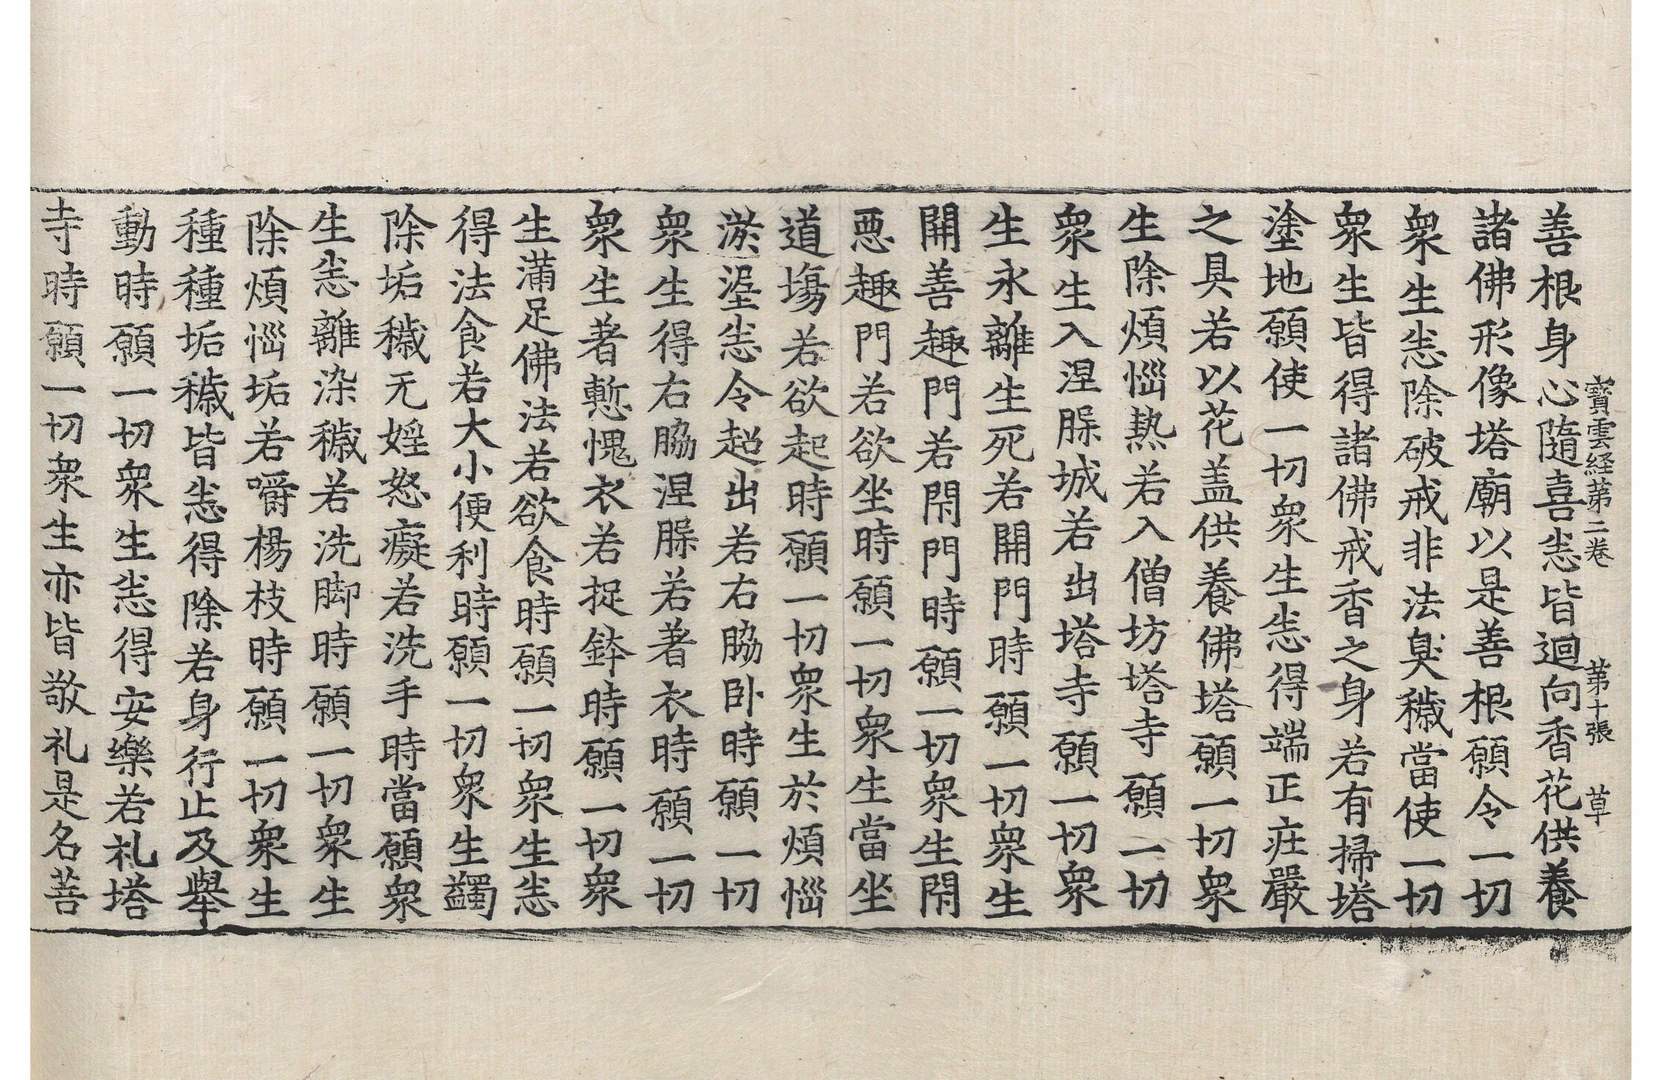 寶雲経苐二卷　苐十張　草
善根身心隨喜悉皆迴向香花供養
諸佛形像塔廟以是善根願令一切
衆生悉除破戒非法臭穢當使一切
衆生皆得諸佛戒香之身若有掃塔
塗地願使一切衆生悉得端正庄嚴
之具若以花盖供養佛塔願一切衆
生除煩惱熱若入僧坊塔寺願一切
衆生入涅槃城若出塔寺時願一切衆
生永離生死若開門時願一切衆生
開善趣門若閇門時願一切衆生閇
惡趣門若欲坐時願一切衆生當坐
道場若欲起時願一切衆生於煩惱
淤埿悉令起出若右脇卧時願一切
衆生得右脇涅槃若著衣時願一切
衆生著慙愧衣若捉鉢時願一切衆
生滿足佛法若欲食時願一切衆生悉
得法食若大小便利時願一切衆生蠲
除垢穢无婬怒癡若洗手時當願衆
生悉離染穢若洗脚時願一切衆生
除煩惱垢若嚼楊枝時願一切衆生
種種垢穢皆悉得除若身行止及舉
動時願一切衆生悉得安樂若礼塔
寺時願一切衆生亦皆敬礼是名菩